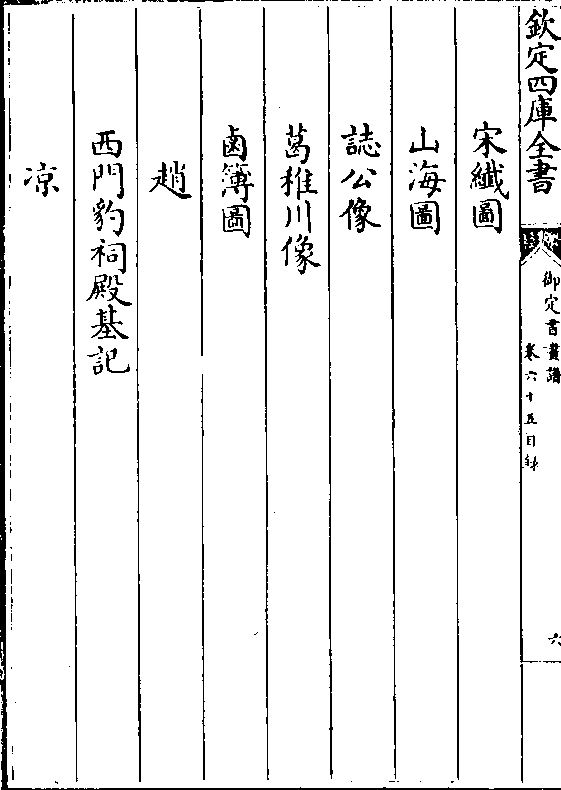 欽定四庫全書
御定書畫譜
卷六十五目録
六
宋纖圖
山海圖
誌公像
葛稚川像
鹵簿圖
趙
西門豹祠殿基記
凉